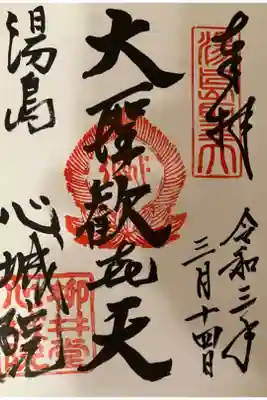 奉拝
令和三年
三月十四日
大聖歓喜天
湯島
心城院